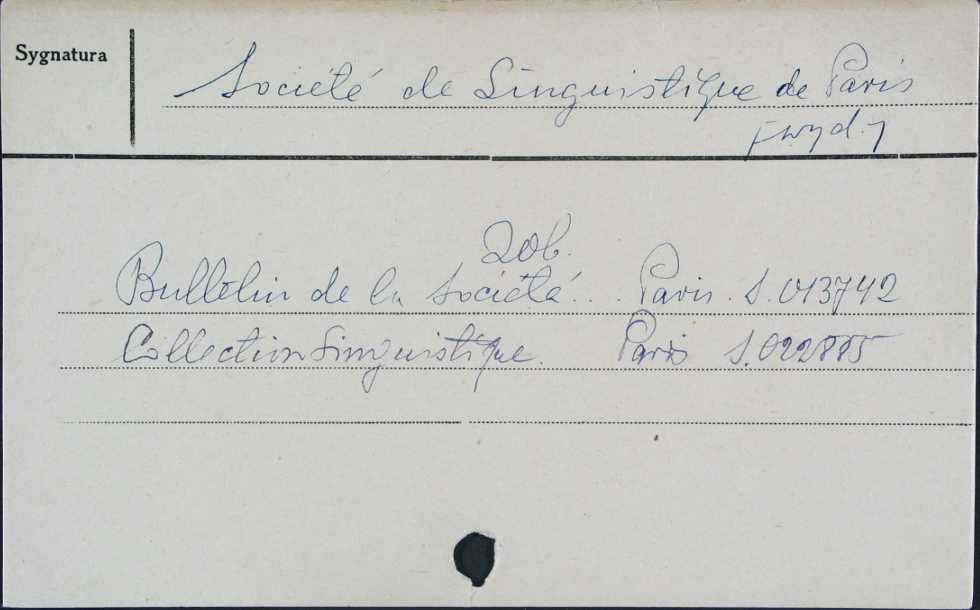 Sygnatura
Société de Linguistique de Paris
[wyd.]
Zob.
Bulletin de la Société... Paris. S. 013742
Collection Linguistique. Paris S. 022885